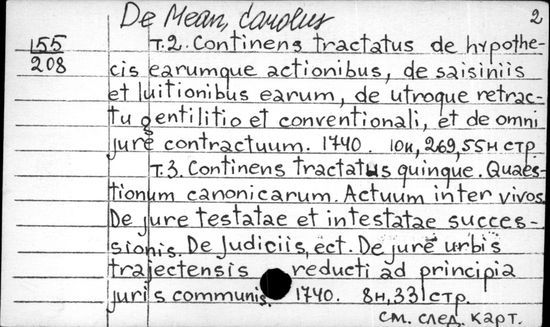 De Mean, Carolus 2
155
208
т.2. Continens tractatus de hypothe-
cis earumque actionibus, de saisiniis
et luitionibus earum, de utroque retrac-
tu gentilitio et conventionali, et de omni
jure contractuum. 1740. 10н, 269, 55н стр.
т.3. Continens tractatus quinque. Quaes-
tionum canonicarum. Actuum inter vivos.
De jure testatae et intestatae succes-
sionis. De Judiciis, ect. De jure urbis
trajectensis reducti ad principia
juris communis. 1740. 8н, 331 стр.
см. след. карт.